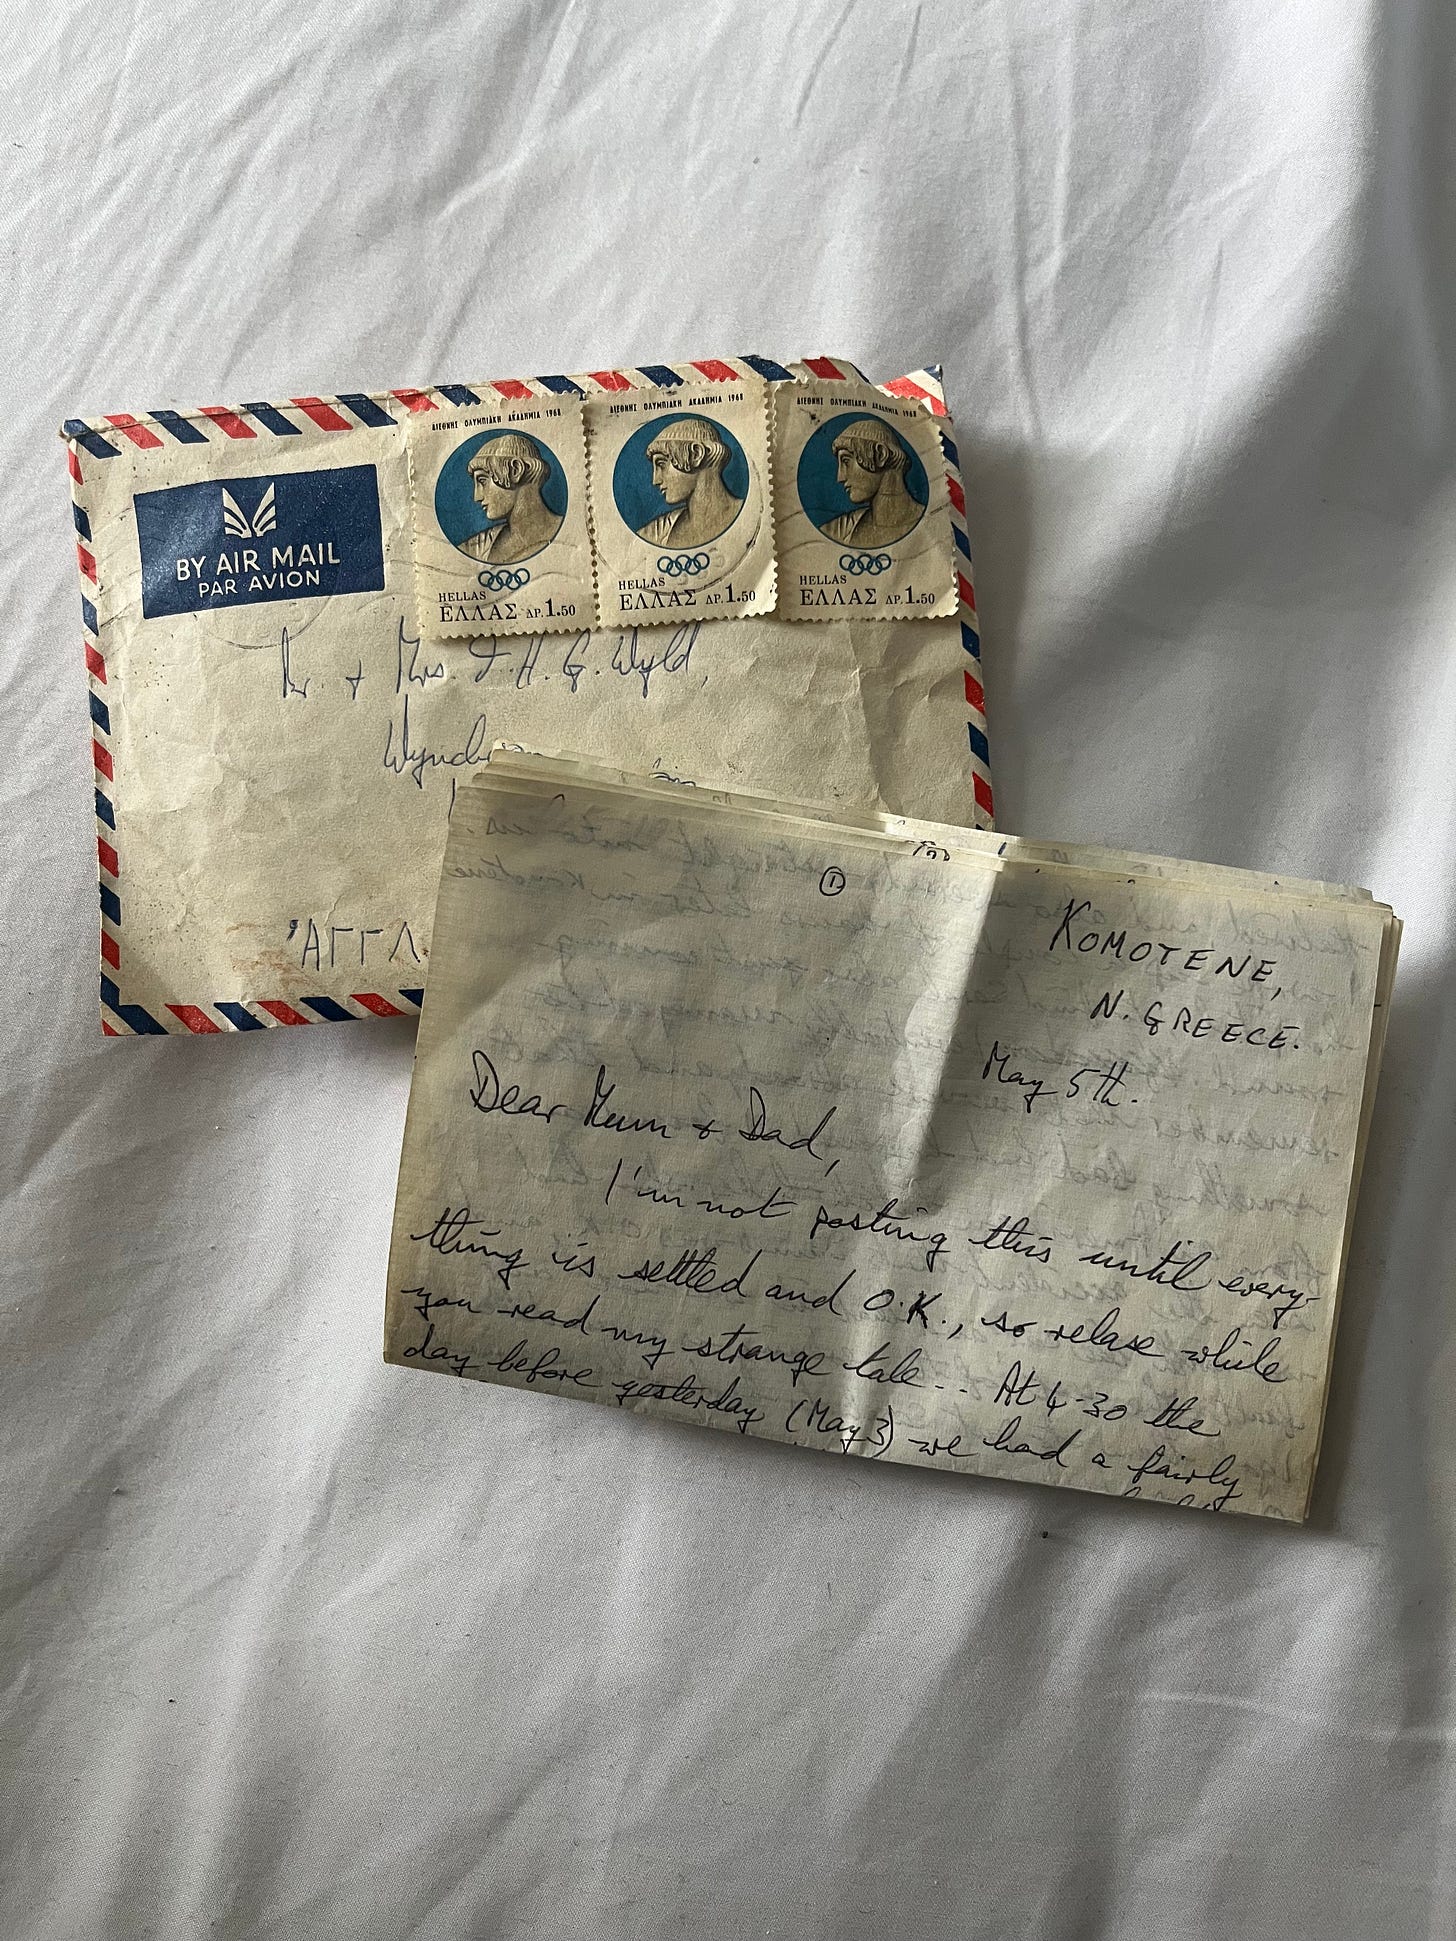 ΔΙΕΘΝΗΣ ΟΛΥΜΠΙΑΚΗ ΑΚΑΔΗΜΙΑ 1968
HELLAS
ΕΛΛΑΣ ΔΡ. 1.50
ΔΙΕΘΝΗΣ ΟΛΥΜΠΙΑΚΗ ΑΚΑΔΗΜΙΑ 1968
HELLAS
ΕΛΛΑΣ ΔΡ. 1.50
ΔΙΕΘΝΗΣ ΟΛΥΜΠΙΑΚΗ ΑΚΑΔΗΜΙΑ 1968
HELLAS
ΕΛΛΑΣ ΔΡ. 1.50
BY AIR MAIL
PAR AVION
+ Mrs. H. G. Wyld,
'ΑΓΓΛ
①
KOMOTENE,
N. GREECE.
May 5th.
Dear Mum + Dad,
I'm not posting this until every-
thing is settled and O.K., so relase while
you read my strange tale.. At 4-30 the
day before yesterday (May 3) we had a fairly